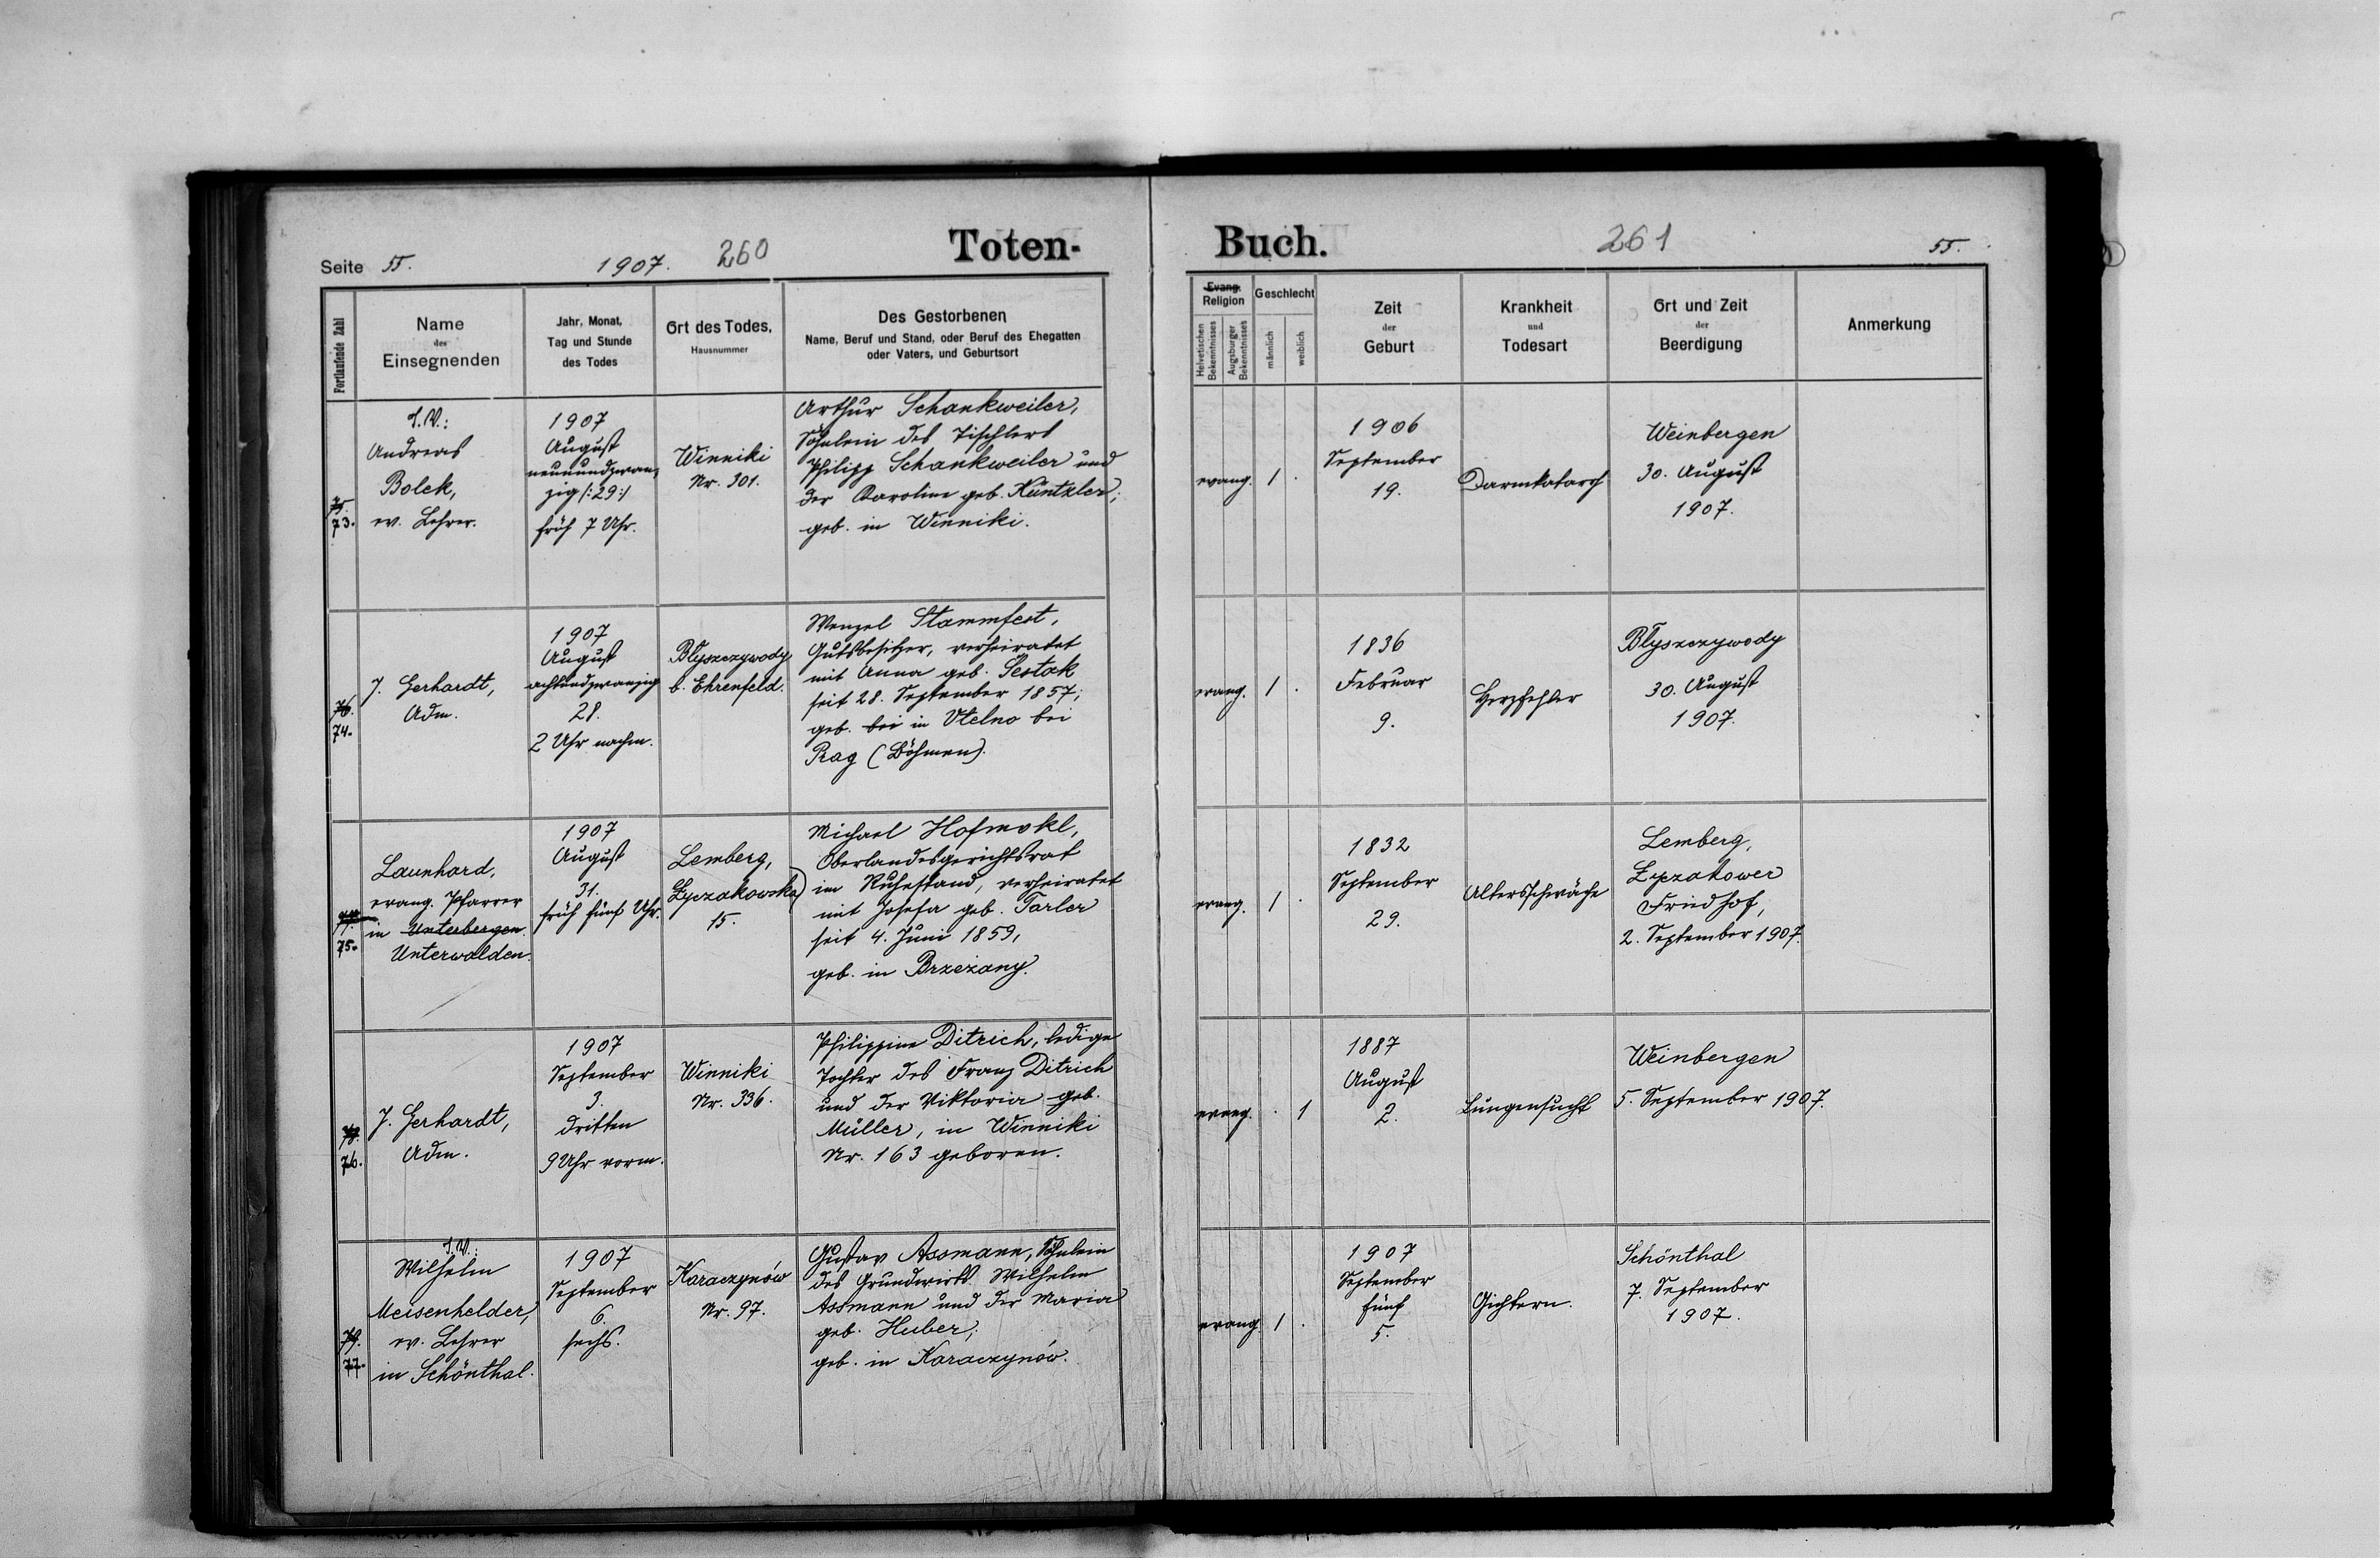 Seite 55.
1907.
260
Toten-
Fortlaufende Zahl
Name
des
Einsegnenden
Jahr, Monat,
Tag und Stunde
des Todes
Ort des Todes,
Hausnummer
Des Gestorbenen
Name, Beruf und Stand, oder Beruf des Ehegatten
oder Vaters, und Geburtsort
75.
73.
I.V.:
Andreas
Bolek,
ev. Lehrer.
1907
August
neunundzwan-
zig /:29:/
früh 7 Uhr.
Winniki
Nr. 301.
Arthur Schankweiler,
Söhnlein des Tischlers
Philipp Schankweiler und
der Karoline geb. Küntzler;
geb. in Winniki.
76.
74.
J. Gerhardt,
Adm.
1907
August
achtundzwanzig
28.
2 Uhr nachm.
Błyszczywody
b. Ehrenfeld.
Wenzel Stammfest,
Gutsbesitzer, verheiratet
mit Anna geb. Šestak
seit 28. September 1857;
geb. bei in Vtelno bei
Prag (Böhmen).
77.
75.
Launhard,
evang. Pfarrer
in Unterbergen.
Unterwalden.
1907
August
31.
früh fünf Uhr.
Lemberg,
Łyczakowska
15.
Michael Hofmokl,
Oberlandesgerichtsrat
im Ruhestand, verheiratet
mit Josefa geb. Tarler
seit 4. Juni 1859,
geb. in Brzeżany.
78.
76.
J. Gerhardt,
Adm.
1907
September
3.
dritten
9 Uhr vorm.
Winniki
Nr. 336.
Philippine Ditrich, ledige
Tochter des Franz Ditrich
und der Viktoria geb.
Müller, in Winniki
Nr. 163 geboren.
79.
77.
I.V.:
Wilhelm
Meisenhelder,
ev. Lehrer
in Schönthal.
1907
September
6.
sechs.
Karaczynów
Nr. 97.
Gustav Assmann, Söhnlein
des Grundwirts Wilhelm
Assmann und der Maria
geb. Huber;
geb. in Karaczynów.
Buch.
261
55.
Evang.
Religion
Helvetischen
Bekenntnisses
Augsburger
Bekenntnisses
Geschlecht
männlich
weiblich
Zeit
der
Geburt
Krankheit
und
Todesart
Ort und Zeit
der
Beerdigung
Anmerkung
evang. 1 .
1906
September
19.
Darmkatarh
Weinbergen
30. August
1907.
evang. 1 .
1836
Februar
9.
Herzfehler
Błyszczywody
30. August
1907.
evang. 1 .
1832
September
29.
Altersschwäche
Lemberg,
Łyczakower
Friedhof,
2. September 1907.
evang. . 1
1887
August
2.
Lungensucht
Weinbergen
5. September 1907.
evang. 1 .
1907
September
fünf
5.
Gichtern.
Schönthal
7. September
1907.